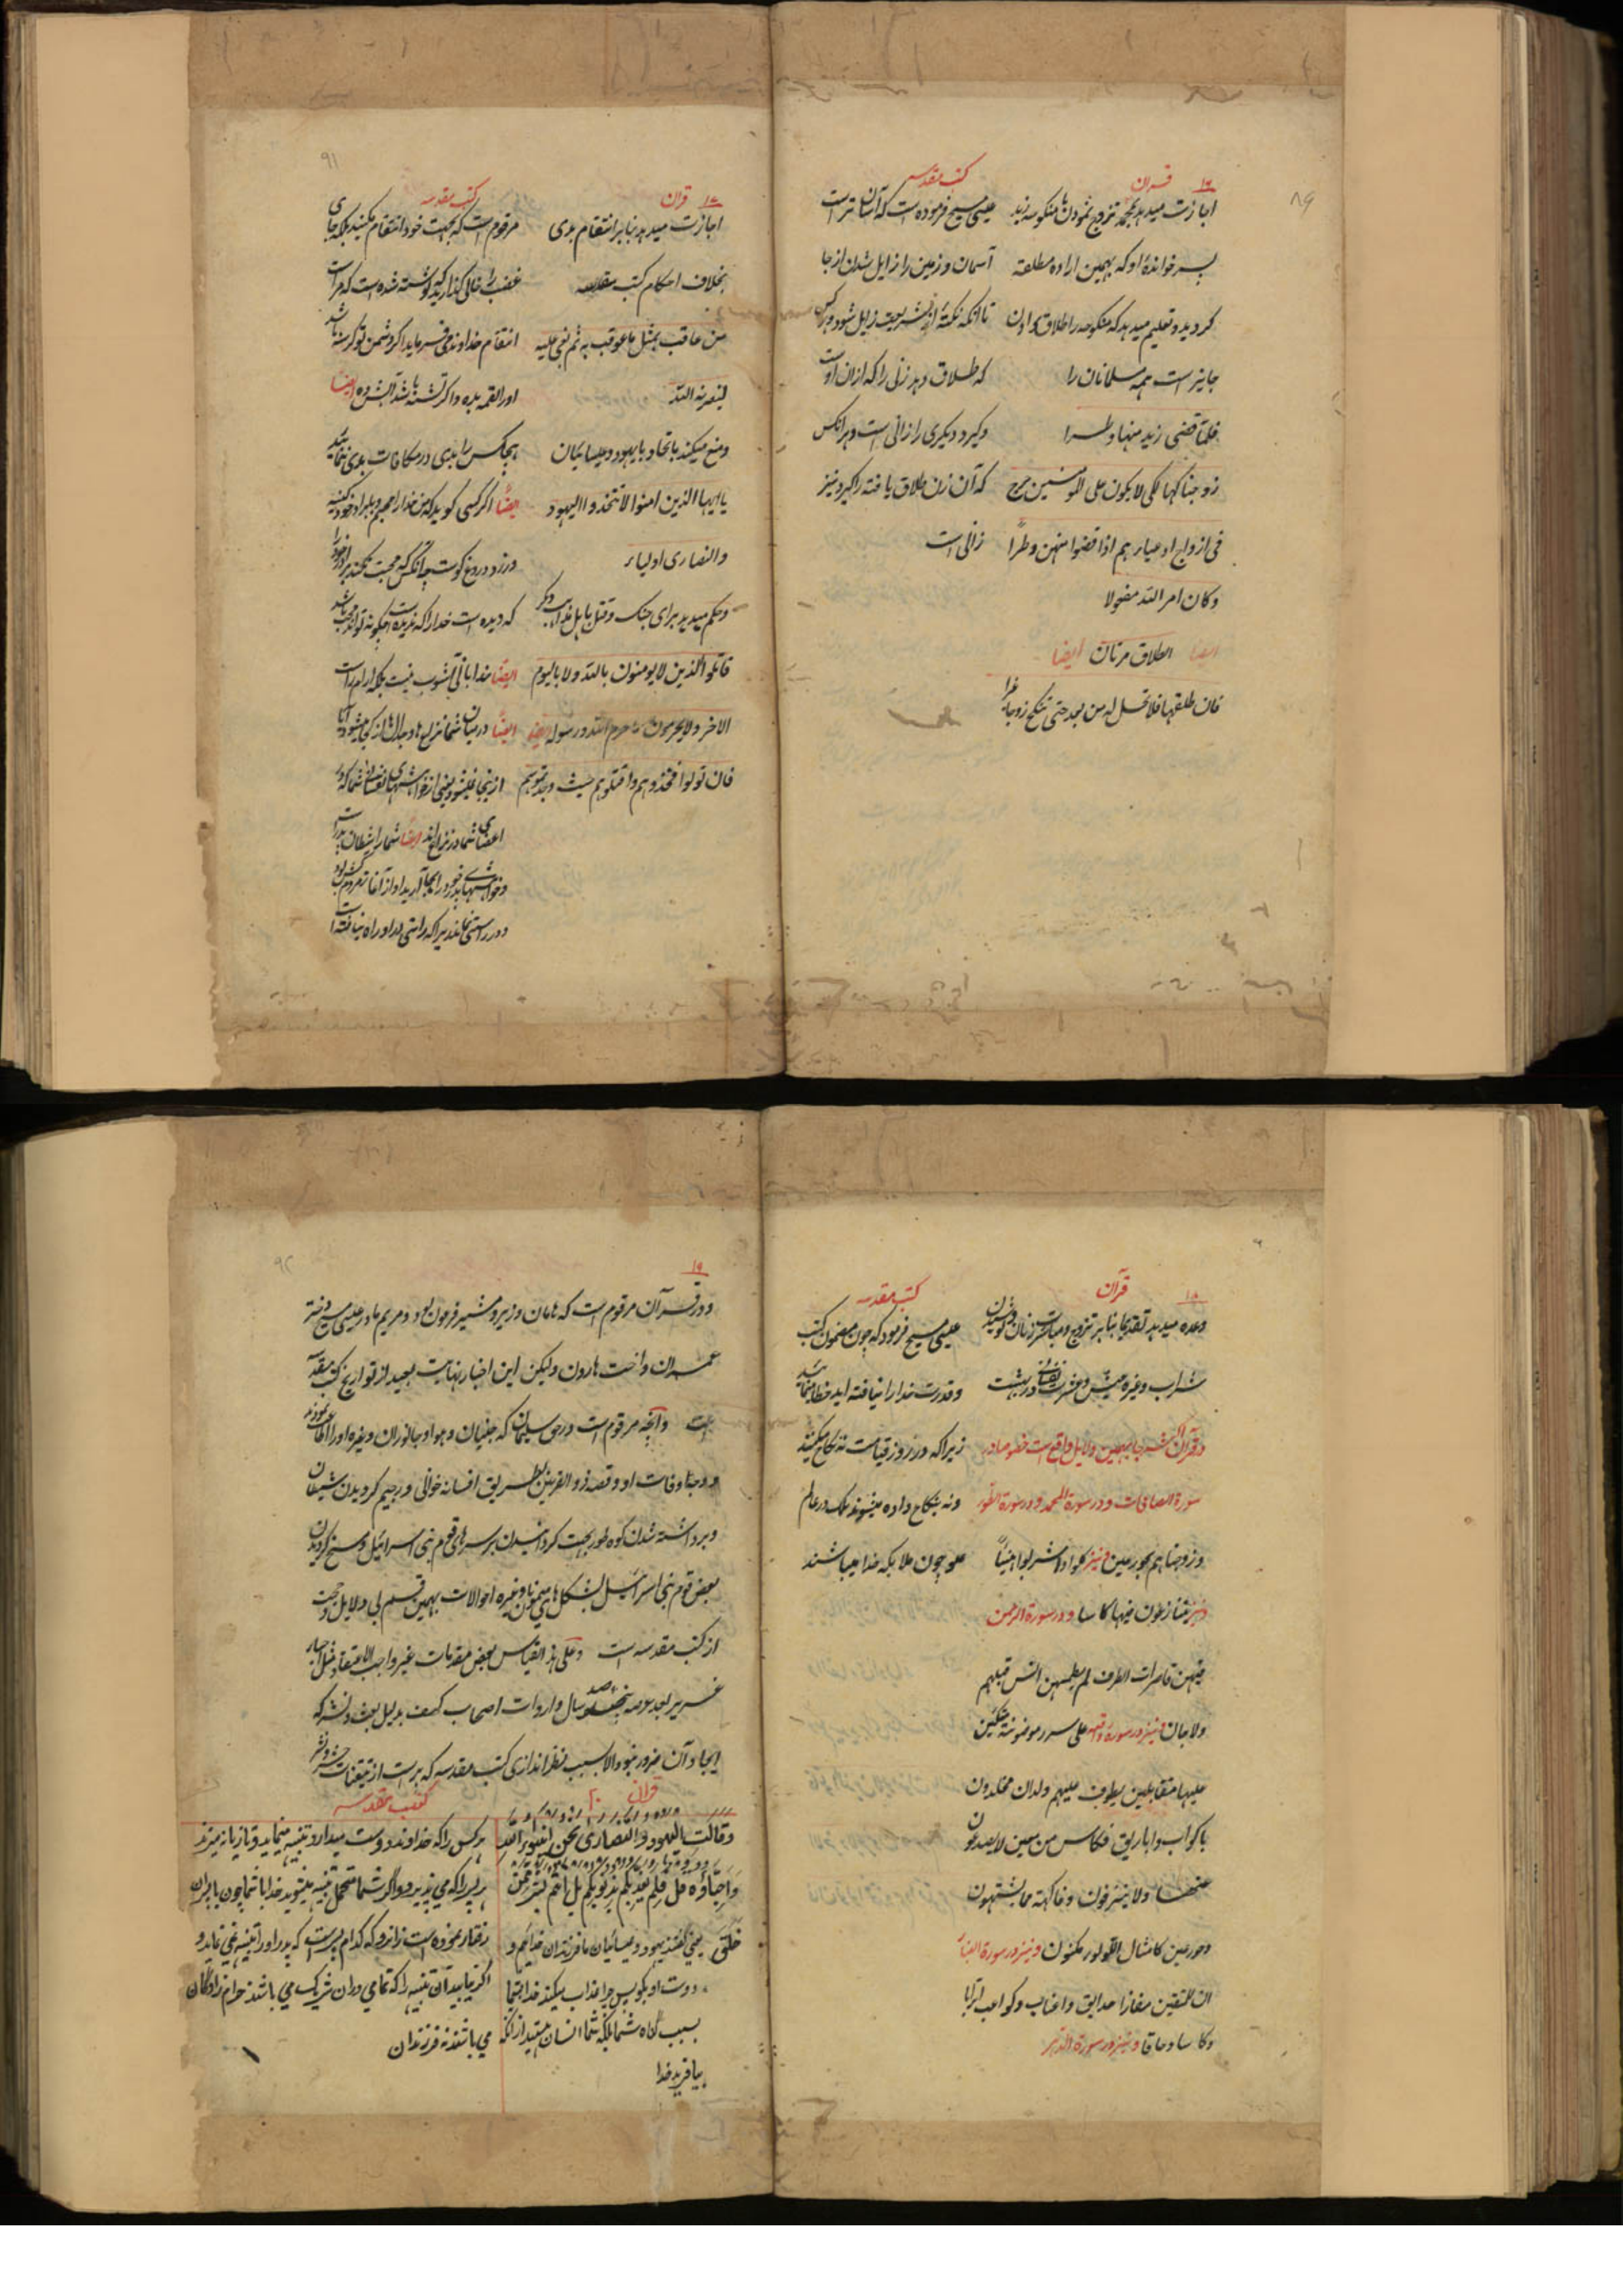 ۱۶ قرآن
کتب مقدسه
اجازت میدهد بمحمد تزوج نمودن با منکوحه زید
پسر خواندهٔ او که بهمین اراده مطلقه
گردید و تعلیم میدهد که منکوحه را طلاق دادن
جایز است همه مسلمانان را
فلما قضی زید منها وطرا
زوجناکها لکی لا یکون علی المومنین حرج
فی ازواج ادعیاءهم اذا قضوا منهن وطرًا
وکان امر الله مفعولا
ایضا الطلاق مرتان ایضا
فان طلقها فلا تحل له من بعد حتی تنکح زوجا غیرا
عیسی مسیح فرموده است که آسان تر است
آسمان و زمین را زایل شدن از جا
تا آنکه نکتهٔ از شریعت زایل شود و هرکس
که طلاق دهد زنی را که از ان اوست
و گیرد دیگری را زانی است و هر انکس
که آن زن طلاق یافته را گیرد نیز
زانی است
۸۹
۹۱
۱۷ قرآن
کتب مقدسه
اجازت میدهد بنابر انتقام بدی
بخلاف احکام کتب مقدسه
من عاقب بمثل ما عوقب به ثم بغی علیه
لینصرنه الله
ومنع میکند باتحاد با یهود و عیسائیان
یا ایها الذین امنوا لا تتخذوا الیهود
والنصاری اولیاء
وحکم میدهد برای جنک و قتل باهل مذاهب دیگر
قاتلوا الذین لا یومنون بالله ولا بالیوم
الاخر ولا یحرمون ما حرم الله ورسوله ایضا
فان تولوا فخذوهم واقتلوهم حیث وجدتموهم
مرقوم است که بجهت خود انتقام مکنید بلکه جای
غضب را خالی گذارید که نوشته شده است که مراست
انتقام خداوند می فرماید اگر دشمن تو گرسنه باشد
او را لقمه بده و اگر تشنه باشد آبش ده ایضا
هیچکس را بدی در مکافات بدی ننمائید
ایضًا اگر کسی گوید که من خدا را محبم و ببرادر خود کینه
ورزد دروغ گوست چه آنکس که محبت نکند برادر خود را
که دیده است خدا را که ندیده است چگونه تواند محب باشد
ایضًا خدا بانی آشوب نیست بلکه آرام راست
ایضًا در میان شما نزاع ها و جدال ها از کجا میشود آیا
از اینجا نمیشود یعنی از خواهشهای نفسانی شما که در
اعضای شما در نزاع اند ایضا شما را شیطان پدر است
وخواهشهای پدر خود را بجا آرید او از آغاز مردم کش بود
و در راستی نماند زیرا که راستی در او راه نیافته است
۱۸
قرآن
کتب مقدسه
وعده میدهد تقدیما بنابر تزوج و مباشرت زنان و نوشیدن
شراب وغیره عیش وعشرت نفسانی در بهشت
در قرآن اکثر جا بهمین دلایل واقع است خصوصا در
سورة الصافات و در سورة المحمد و در سورة الطور
وزوجناهم بحور عین و نیز کلوا واشربوا هنیئاً
ونیز یتنازعون فیها کاسا و در سورة الرحمن
فیهن قاصرات الطرف لم یطمثهن انس قبلهم
ولا جان و نیز در سورة واقعه علی سرر موضونة متکئین
علیها متقابلین یطوف علیهم ولدان مخلدون
باکواب واباریق وکاس من معین لا یصدعون
عنها ولا ینزفون وفاکهة مما یشتهون
وحور عین کامثال اللؤلؤ المکنون و نیز در سورة النبأ
ان للمتقین مفازا حدایق واعنابا وکواعب اترابا
وکاسا دهاقا و نیز در سورة الدهر
عیسی مسیح فرمود که چون مضمون کتب
وقدرت خدا را نیافته اید خطا مینمائید
زیرا که در روز قیامت نه نکاح میکنند
ونه بنکاح داده میشوند بلک در عالم
علوی چون ملایکه خدا میباشند
۹۲
۱۹
و در قرآن مرقوم است که هامان وزیر و مشیر فرعون بود و مریم مادر عیسی مسیح دختر
عمران واخت هارون ولیکن این اخبار نهایت بعید از تواریخ کتب مقدسه
است و آنچه مرقوم است در حق سلیمان که جنیان وهوا وجانوران وغیره او را اطاعت نمودند
و وفات او و قصه ذوالقرنین بطریق افسانه خوانی و رجیم گردیدن شیطان
و برداشته شدن کوه طور بجهت گردانیدن بر سرهای قوم بنی اسرائیل و مسخ گردیدن
بعض قوم بنی اسرائیل بشکل های میمون وغیره احوالات بهمین قسم بی دلایل و حجت
از کتب مقدسه است وعلی هذا القیاس بعض مقدمات غیر واجب الاعتقاد مثل اجبار
سال واردات اصحاب کهف بدلیل بعث و نشر که
ایجاد آن ضرور نبود والا بسبب نظر اندازی کتب مقدسه که پر است از تیقنات حشر و نشر
قرآن ۲۰
کتب مقدسه
وقالت الیهود والنصاری نحن ابنؤا الله
واحباؤه قل فلم یعذبکم بذنوبکم بل انتم بشر ممن
خلق یعنی گفتند یهود و عیسائیان ما فرزندان خدائیم و
دوست او بگو پس چرا عذاب میکند خدا شما
بسبب گناه شما بلکه شما انسان هستید از آنکه
بیافرید خدا
هر کس را که خداوند دوست میدارد تنبیه مینماید و تازیانه میزند
هر پسر را که می پذیرد و اگر شما متحمل تنبیه میشوید خدا با شما چون با پسران
رفتار نموده است زانرو که کدام پسر است که پدر او را تنبیه نمی نماید و
اگر نیابید آن تنبیه را که تمامی دران شریک می باشند حرام زادگان
می باشند نه فرزندان